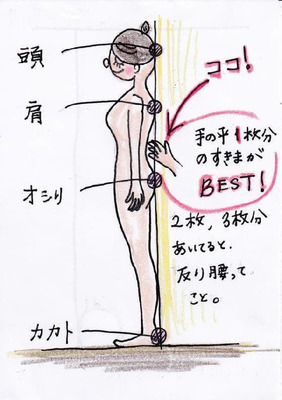 頭
肩
オシリ
カカト
ココ!
手の平1枚分
のすきまが
BEST!
2枚、3枚分
あいてると、
反り腰って
こと。